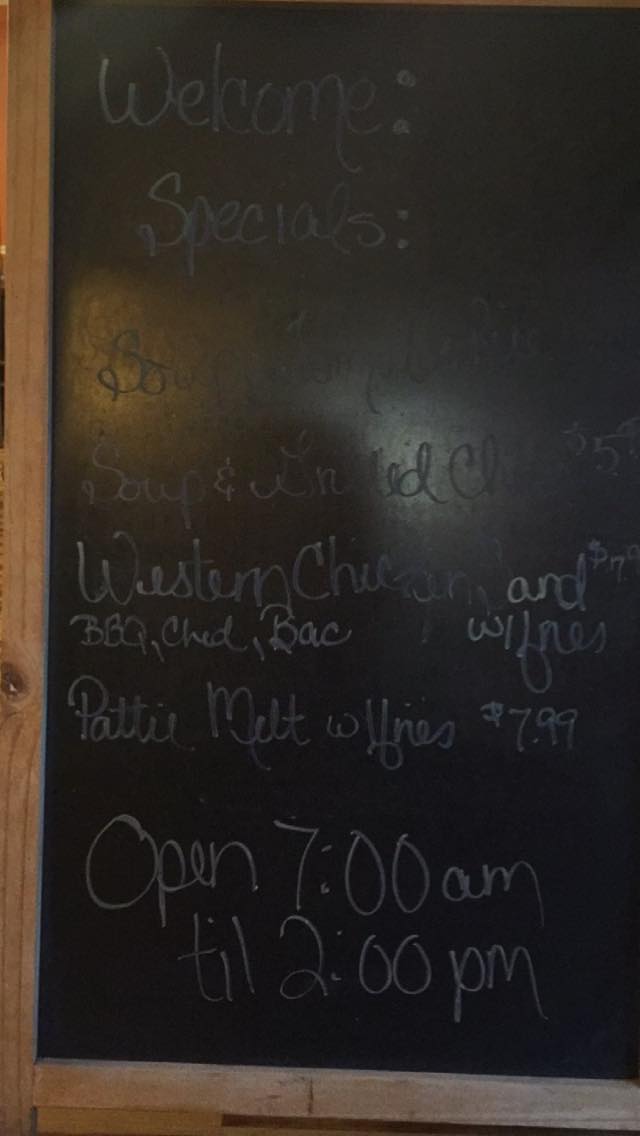 Welcome:
Specials:
Soup
Soup & Grilled
Western Chicken Sand
BBQ, Ched, Bac w/fries
Pattie Melt w/fries $7.99
Open 7:00 am
til 2:00 pm